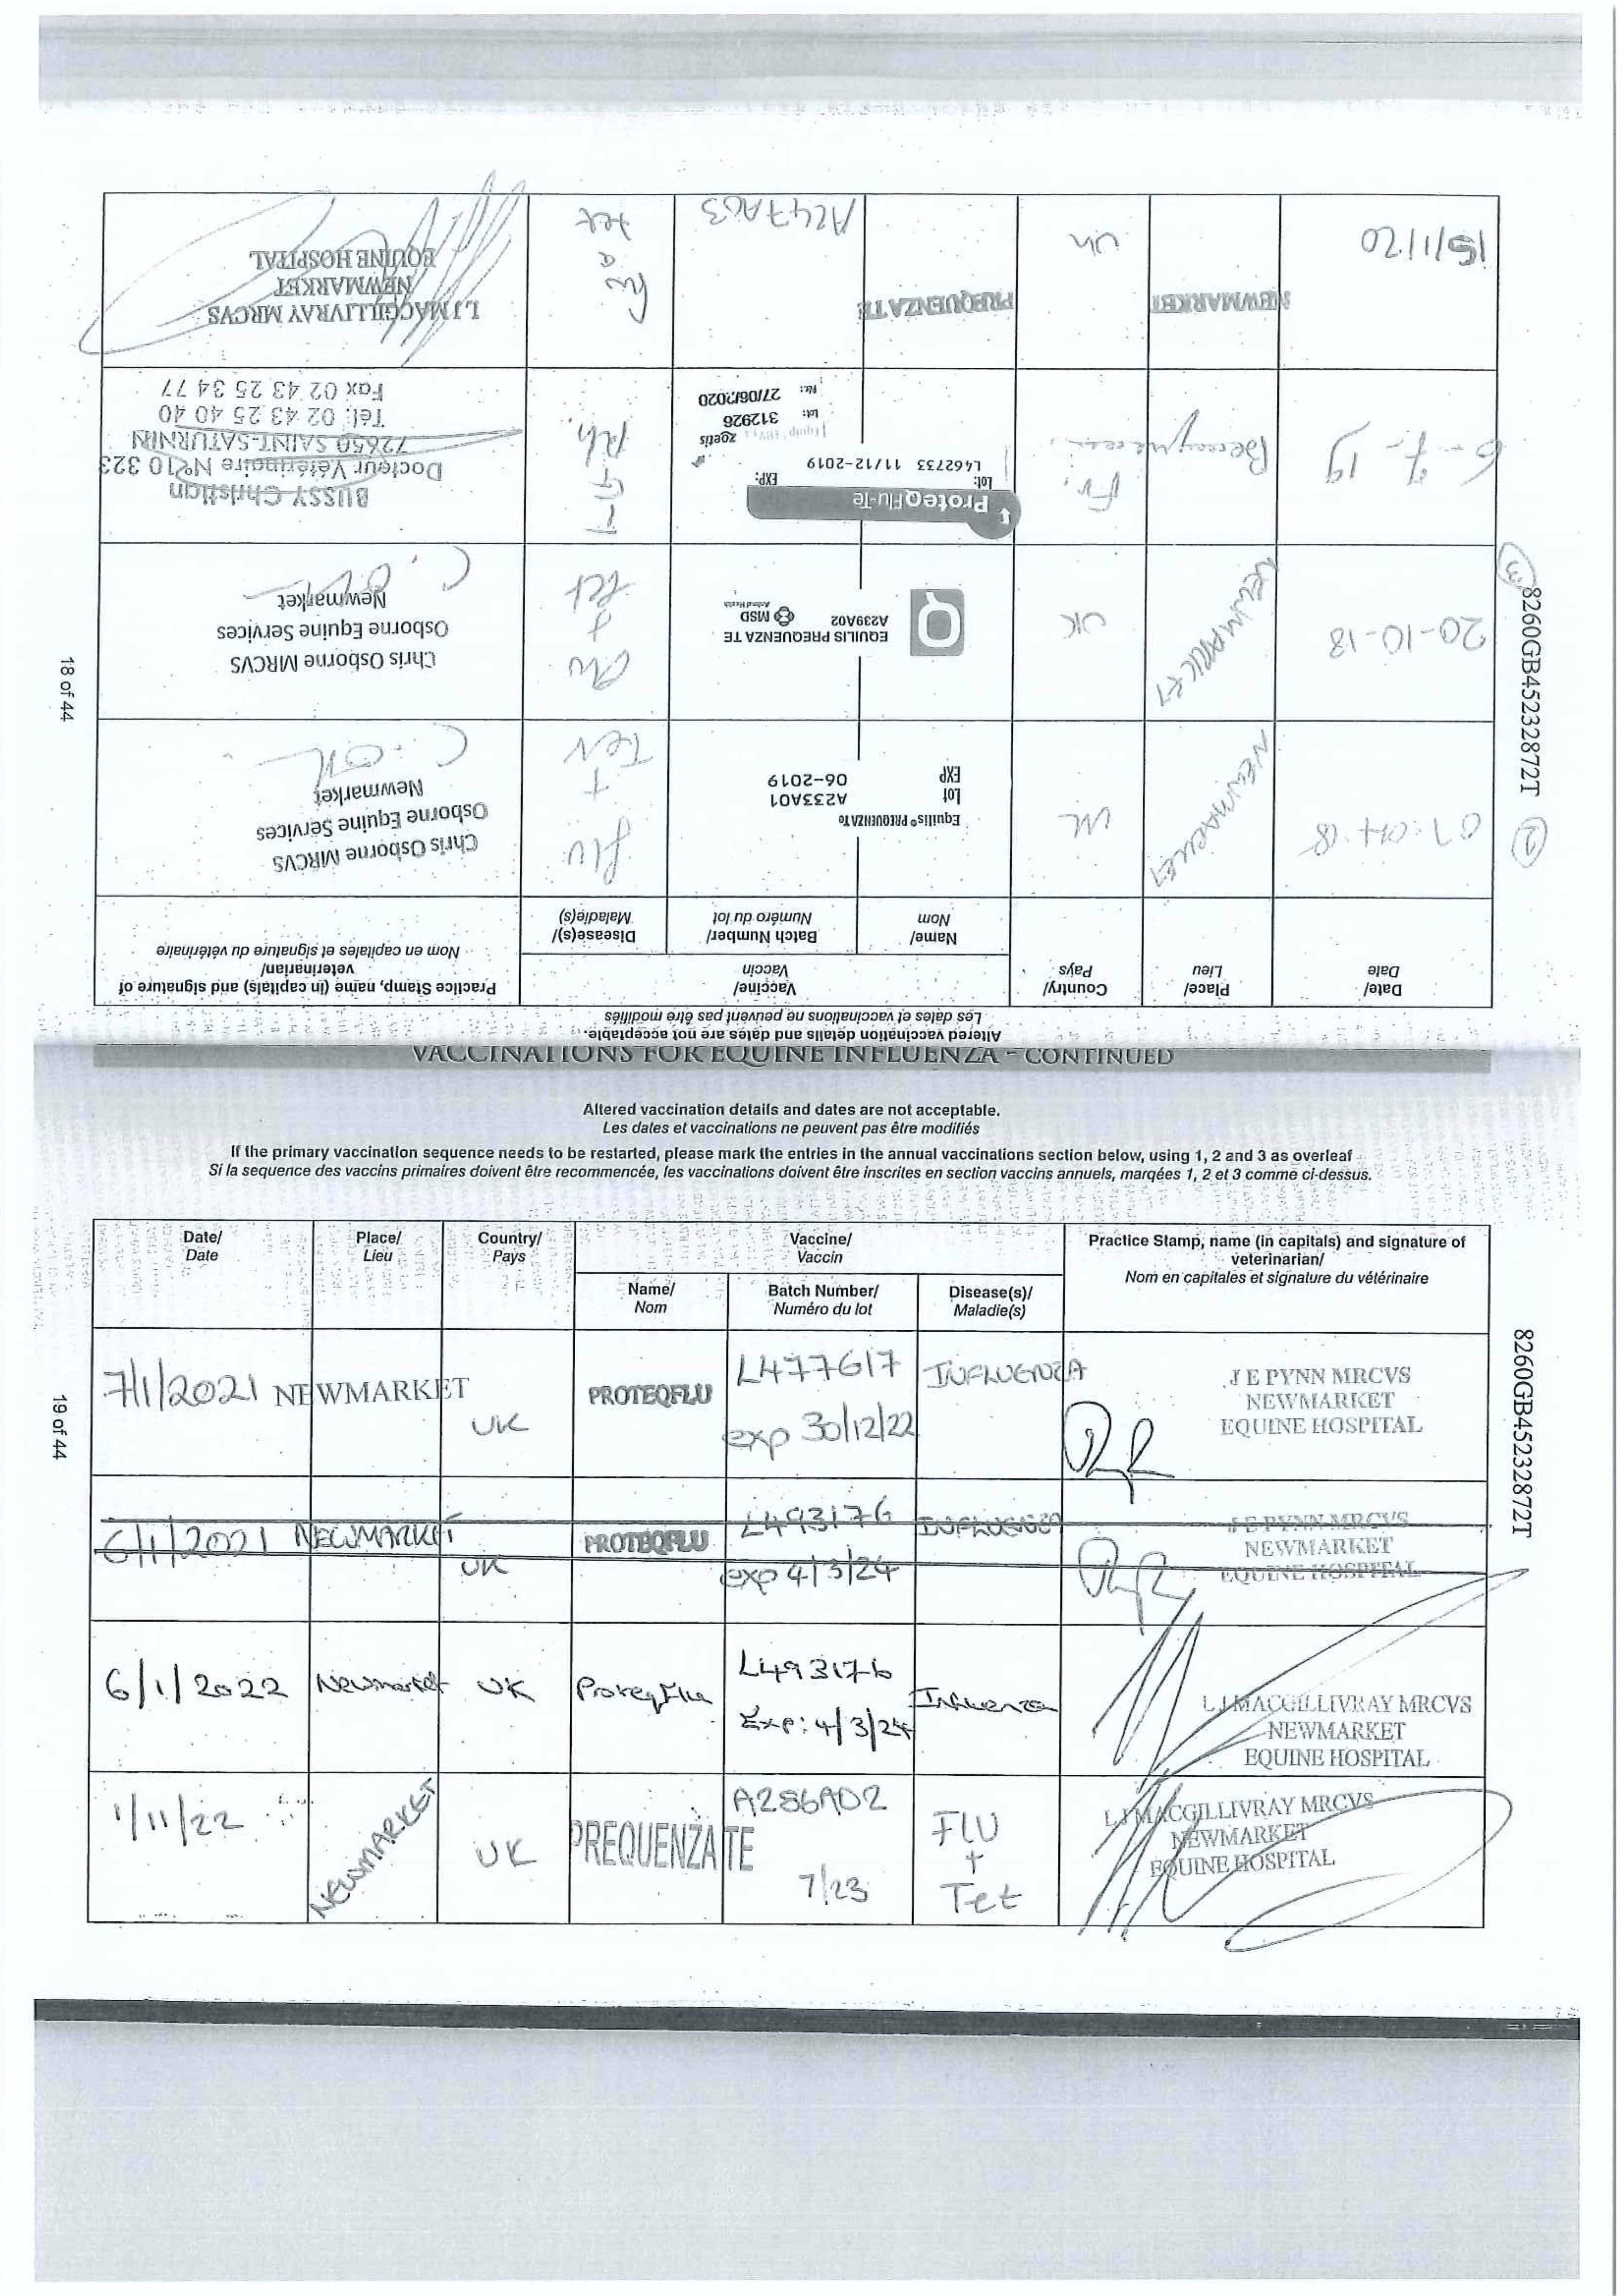 8260GB45232872T
18 of 44
Altered vaccination details and dates are not acceptable.
Les dates et vaccinations ne peuvent pas être modifiés
Date/
Date
Place/
Lieu
Country/
Pays
Vaccine/
Vaccin
Name/
Nom
Batch Number/
Numéro du lot
Disease(s)/
Maladie(s)
Practice Stamp, name (in capitals) and signature of
veterinarian/
Nom en capitales et signature du vétérinaire
2
07.04.18
NEWMARKET
UK
Equilis® PREQUENZA Te
Lot A233A01
EXP 06-2019
flu
+
Tet
Chris Osborne MRCVS
Osborne Equine Services
Newmarket
3
20-10-18
NEWMARKET
UK
EQUILIS PREQUENZA TE
A239A02
MSD
Animal Health
flu
+
tet
Chris Osborne MRCVS
Osborne Equine Services
Newmarket
6-7-19
Fr.
1 ProteqFlu-Te
Lot: EXP:
L462733 11/12-2019
zoetis
Lot: 312926
27/06/2020
G-T
Rh.
BUSSY Christian
Docteur Vétérinaire N°10 323
72650 SAINT-SATURNIN
Tél. 02 43 25 40 40
Fax 02 43 25 34 77
15/1/20
NEWMARKET
UK
PREQUENZA TE
A247A03
Flu
&
tet
L J MACGILLIVRAY MRCVS
NEWMARKET
EQUINE HOSPITAL
VACCINATIONS FOR EQUINE INFLUENZA - CONTINUED
Altered vaccination details and dates are not acceptable.
Les dates et vaccinations ne peuvent pas être modifiés
If the primary vaccination sequence needs to be restarted, please mark the entries in the annual vaccinations section below, using 1, 2 and 3 as overleaf
Si la sequence des vaccins primaires doivent être recommencée, les vaccinations doivent être inscrites en section vaccins annuels, marqées 1, 2 et 3 comme ci-dessus.
Date/
Date
Place/
Lieu
Country/
Pays
Vaccine/
Vaccin
Name/
Nom
Batch Number/
Numéro du lot
Disease(s)/
Maladie(s)
Practice Stamp, name (in capitals) and signature of
veterinarian/
Nom en capitales et signature du vétérinaire
7/1/2021
NEWMARKET
UK
PROTEQFLU
L477617
exp 30/12/22
INFLUENZA
J E PYNN MRCVS
NEWMARKET
EQUINE HOSPITAL
6/1/2021
NEWMARKET
UK
PROTEQFLU
L493176
exp 4/3/24
INFLUENZA
J E PYNN MRCVS
NEWMARKET
EQUINE HOSPITAL
6/1/2022
Newmarket
UK
ProteqFlu
L493176
Exp: 4/3/24
Influenza
L J MACGILLIVRAY MRCVS
NEWMARKET
EQUINE HOSPITAL
1/11/22
NEWMARKET
UK
PREQUENZA TE
A286A02
7/23
FLU
+
Tet
L J MACGILLIVRAY MRCVS
NEWMARKET
EQUINE HOSPITAL
19 of 44
8260GB45232872T